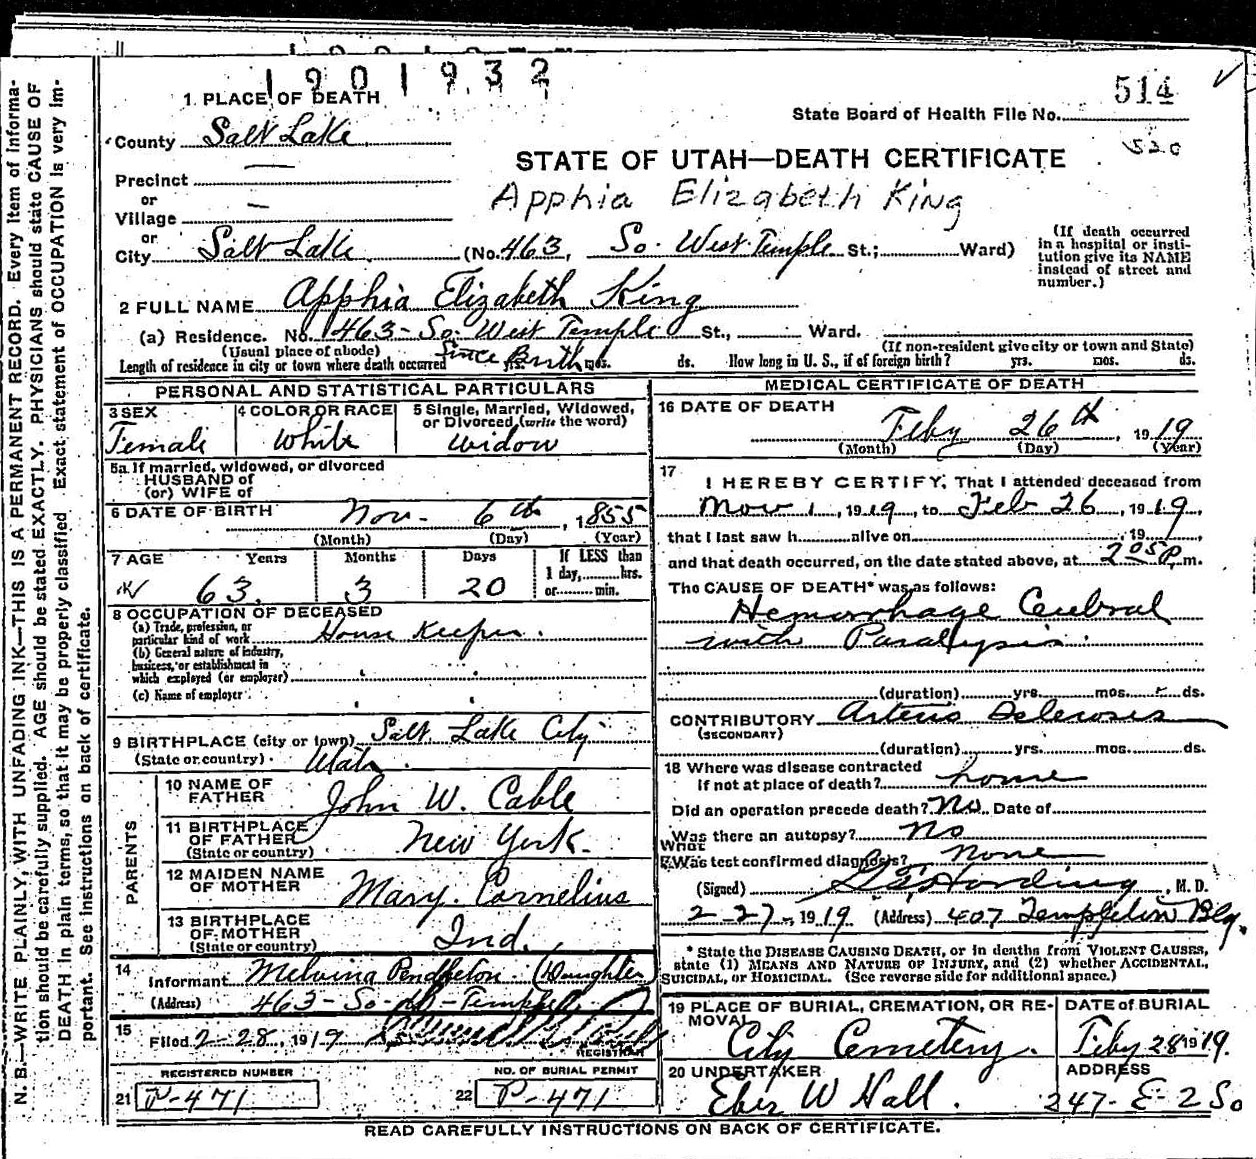 1901932
514
520
State Board of Health File No.
STATE OF UTAH—DEATH CERTIFICATE
Apphia Elizabeth King
1 PLACE OF DEATH
County Salt Lake
Precinct —
or
Village —
or
City Salt Lake (No. 463, So. West Temple St.; Ward)
(If death occurred in a hospital or institution give its NAME instead of street and number.)
2 FULL NAME Apphia Elizabeth King
(a) Residence. No. 463-So. West Temple St., Ward.
(Usual place of abode) (If non-resident give city or town and State)
Length of residence in city or town where death occurred Since Birth yrs. mos. ds. How long in U. S., if of foreign birth? yrs. mos. ds.
PERSONAL AND STATISTICAL PARTICULARS
3 SEX
Female
4 COLOR OR RACE
White
5 Single, Married, Widowed,
or Divorced (write the word)
Widow
5a If married, widowed, or divorced
HUSBAND of
(or) WIFE of
6 DATE OF BIRTH Nov. 6th, 1855
(Month) (Day) (Year)
7 AGE Years Months Days If LESS than
63 3 20 1 day,......hrs.
or......min.
8 OCCUPATION OF DECEASED
(a) Trade, profession, or
particular kind of work House Keeper.
(b) General nature of industry,
business, or establishment in
which employed (or employer)
(c) Name of employer
9 BIRTHPLACE (city or town) Salt Lake City
(State or country) Utah.
PARENTS
10 NAME OF
FATHER John W. Cable
11 BIRTHPLACE
OF FATHER
(State or country) New York.
12 MAIDEN NAME
OF MOTHER Mary. Cornelius
13 BIRTHPLACE
OF MOTHER
(State or country) Ind.
14
Informant Melvina Pendleton. (Daughter)
(Address) 463-So-W-Temple
15
Filed 2-28, 1919
REGISTRAR
REGISTERED NUMBER
21 P-471
NO. OF BURIAL PERMIT
22 P-471
MEDICAL CERTIFICATE OF DEATH
16 DATE OF DEATH
Feby 26th, 1919
(Month) (Day) (Year)
17
I HEREBY CERTIFY, That I attended deceased from
1, 1919, to Feb 26, 1919,
that I last saw h......alive on......, 19....,
and that death occurred, on the date stated above, at 2 05 P. m.
The CAUSE OF DEATH* was as follows:
Hemorrhage Cerebral
with Paralysis.
(duration) yrs. mos. ds.
CONTRIBUTORY Arterio Sclerosis
(SECONDARY)
(duration) yrs. mos. ds.
18 Where was disease contracted
if not at place of death? home
Did an operation precede death? No. Date of
Was there an autopsy? No
What
Was test confirmed diagnosis? None
(Signed) Harding, M. D.
2-27-, 1919 (Address) 407 Templeton Blg.
* State the DISEASE CAUSING DEATH, or in deaths from VIOLENT CAUSES,
state (1) MEANS AND NATURE OF INJURY, and (2) whether ACCIDENTAL,
SUICIDAL, or HOMICIDAL. (See reverse side for additional space.)
19 PLACE OF BURIAL, CREMATION, OR RE-
MOVAL
City Cemetery.
DATE of BURIAL
Feby 28 1919.
20 UNDERTAKER
Eber W Hall.
ADDRESS
247-E-2 So
READ CAREFULLY INSTRUCTIONS ON BACK OF CERTIFICATE.
N. B.—WRITE PLAINLY, WITH UNFADING INK—THIS IS A PERMANENT RECORD. Every item of Informa-
tion should be carefully supplied. AGE should be stated EXACTLY. PHYSICIANS should state CAUSE OF
DEATH in plain terms, so that it may be properly classified. Exact statement of OCCUPATION is very im-
portant. See instructions on back of certificate.